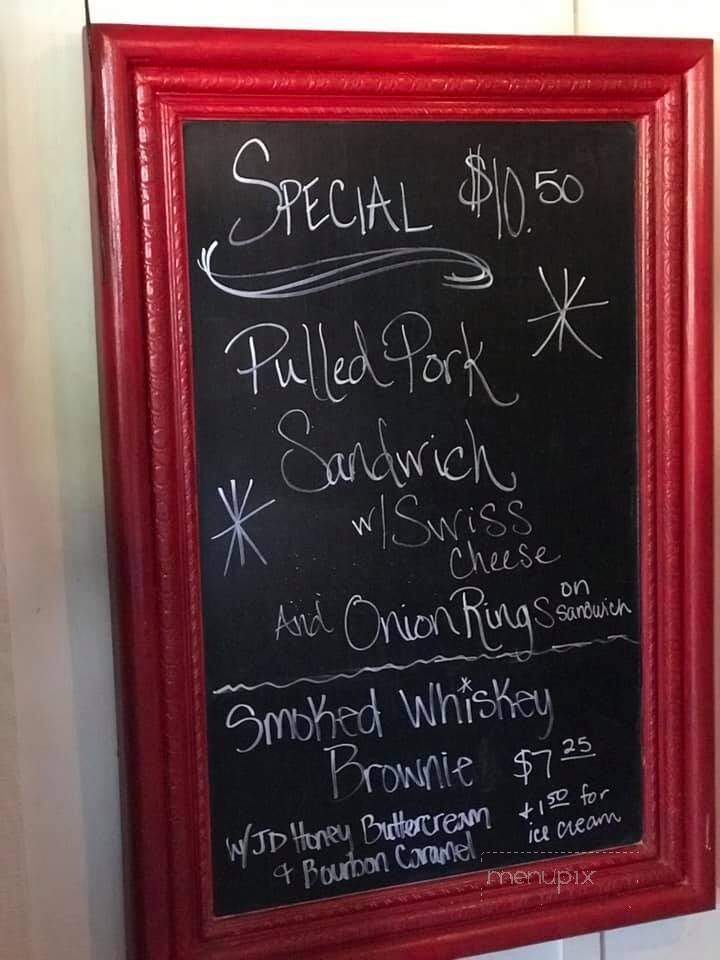 SPECIAL $10.50
Pulled Pork
Sandwich
w/Swiss
Cheese
And Onion Rings on sandwich
Smoked Whiskey
Brownie $7 25
w/ JD Honey Buttercream +1 50 for
& Bourbon Caramel ice cream
menupix